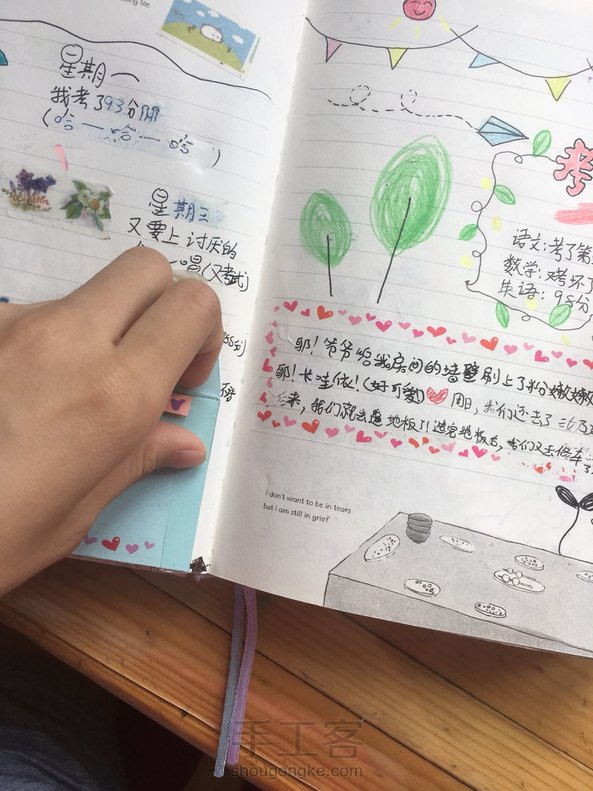 ing Me
星期一
我考了93分
(哈一哈一哈)
星期三
又要上讨厌的
唱(又考试)
考
语文:考了第
数学:考坏了
英语:98分
耶!爷爷给我房间的墙壁刷上了粉嫩嫩
耶!卡哇依!(好可爱) 周日,我们还去了
来,我们就去选地板了!选完地板后,我们又去
I don't want to be in tears
but I am still in grief
手工客
shougongke.com